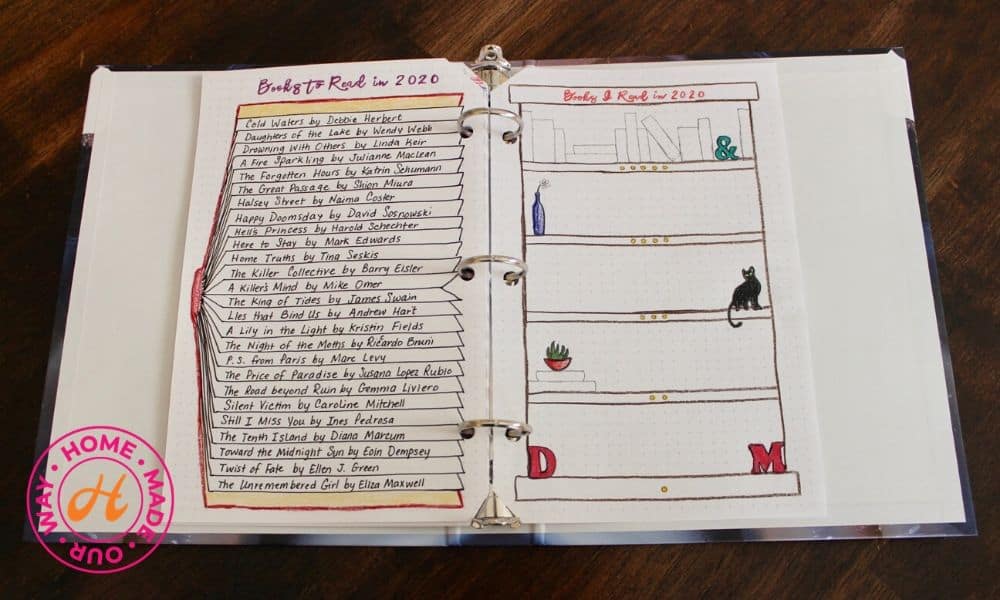 Books to Read in 2020
Cold Waters by Debbie Herbert
Daughters of the Lake by Wendy Webb
Drowning With Others by Linda Keir
A Fire Sparkling by Julianne MacLean
The Forgotten Hours by Katrin Schumann
The Great Passage by Shion Miura
Halsey Street by Naima Coster
Happy Doomsday by David Sosnowski
Hell's Princess by Harold Schechter
Here to Stay by Mark Edwards
Home Truths by Tina Seskis
The Killer Collective by Barry Eisler
A Killer's Mind by Mike Omer
The King of Tides by James Swain
Lies that Bind Us by Andrew Hart
A Lily in the Light by Kristin Fields
The Night of the Moths by Riccardo Bruni
P.S. from Paris by Marc Levy
The Price of Paradise by Susana Lopez Rubio
The Road beyond Ruin by Gemma Liviero
Silent Victim by Caroline Mitchell
Still I Miss You by Ines Pedrosa
The Tenth Island by Diana Marcum
Toward the Midnight Sun by Eoin Dempsey
Twist of Fate by Ellen J. Green
The Unremembered Girl by Eliza Maxwell
Books I Read in 2020
&
D M
HOME · MADE · OUR · WAY
H